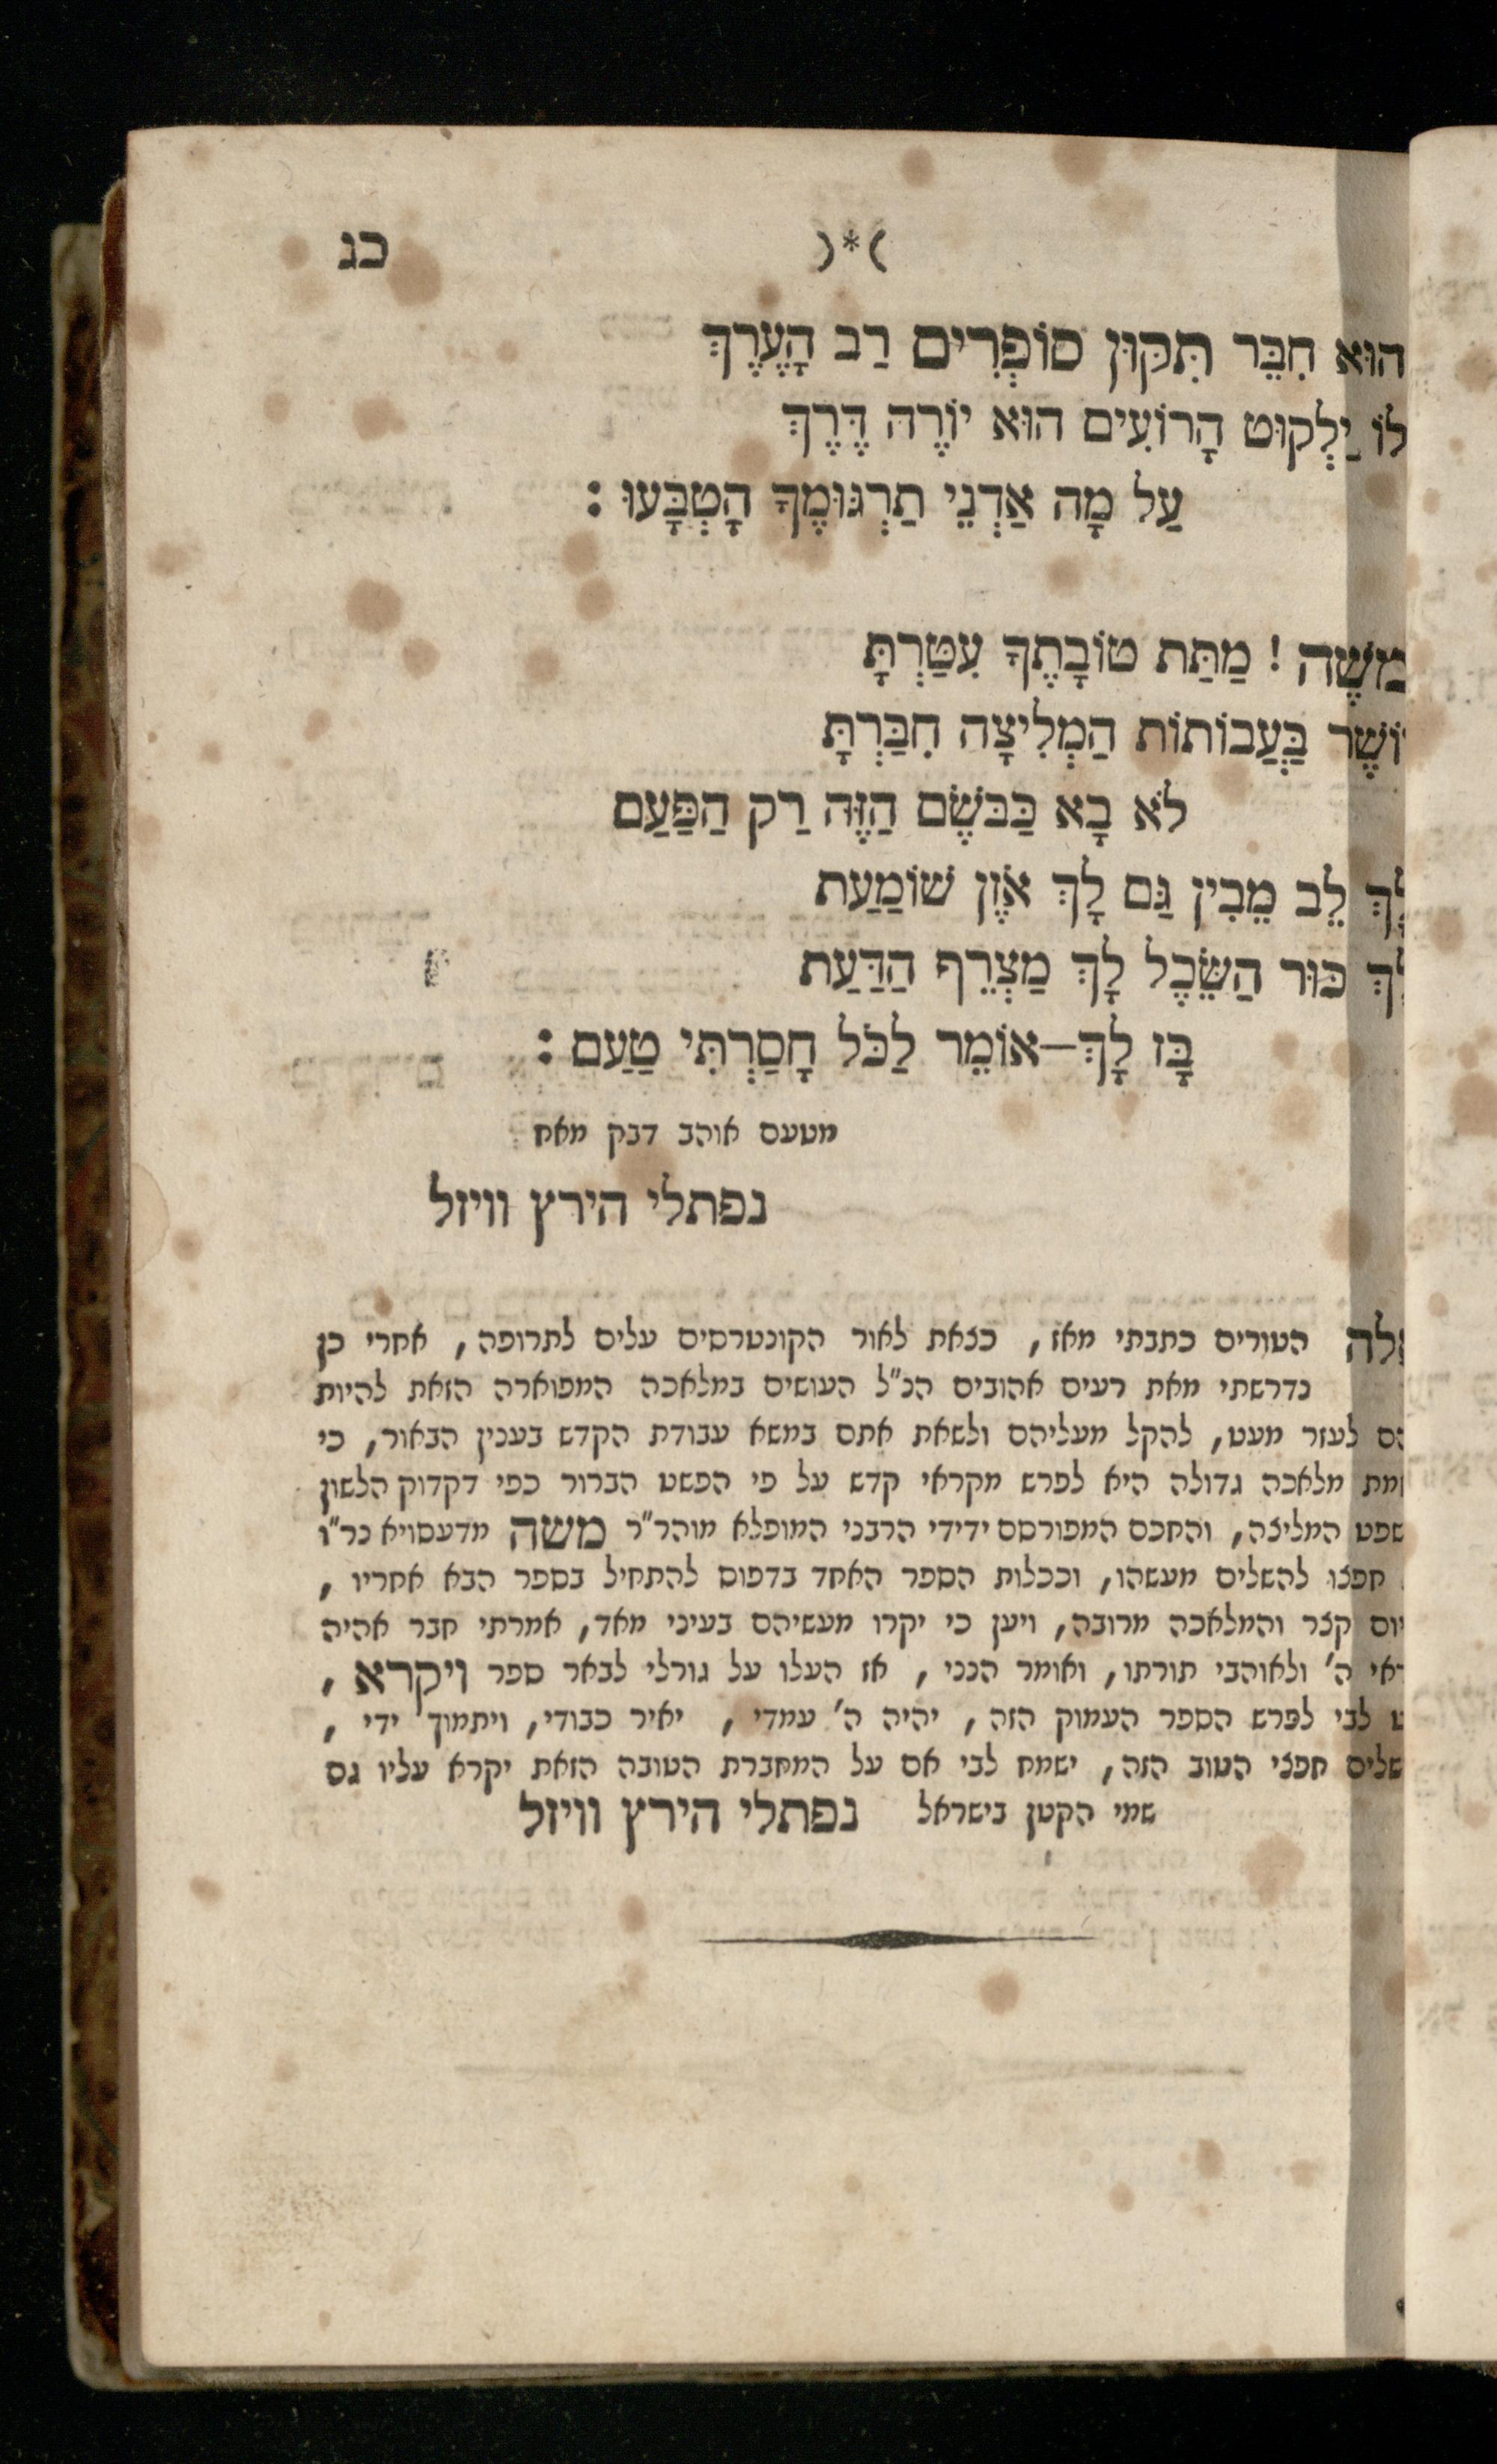 )*( כג
הוּא חִבֵּר תִּקּוּן סוֹפְרִים רַב הָעֶרֶךְ
לוֹ יַלְקוּט הָרוֹעִים הוּא יוֹרֶה דֶּרֶךְ
עַל מָה אַדְנֵי תַרְגּוּמֶךָ הָטְבָּעוּ :
משֶׁה ! מַתַּת טוֹבָתֶךָ עִטַּרְתָּ
בַּעֲבוֹתוֹת הַמְלִיצָה חִבַּרְתָּ
לֹא בָא כַּבּשֶׂם הַזֶּה רַק הַפַּעַם
לֵב מֵבִין גַּם לָךְ אֹזֶן שׁוֹמַעַת
כּוּר הַשֵּׂכֶל לָךְ מַצְרֵף הַדַּעַת
בָּז לָךְ—אוֹמֵר לַכֹּל חָסַרְתִּי טַעַם :
מטעם אוהב דבק מאח
נפתלי הירץ וויזל
הטורים כתבתי מאז, כצאת לאור הקונטרסים עלים לתרופה, אחרי כן
נדרשתי מאת רעים אהובים הנ"ל העושים במלאכה המפוארה הזאת להיות
לעזר מעט, להקל מעליהם ולשאת אתם במשא עבודת הקדש בענין הבאור, כי
מלאכה גדולה היא לפרש מקראי קדש על פי הפשט הברור כפי דקדוק הלשון
המליצה, והחכם המפורסם ידידי הרבני המופלא מוהר"ר משה מדעסויא נר"ו
חפצו להשלים מעשהו, וככלות הספר האחד בדפוס להתחיל בספר הבא אחריו,
קצר והמלאכה מרובה, ויען כי יקרו מעשיהם בעיני מאד, אמרתי חבר אהיה
ה' ולאוהבי תורתו, ואומר הנני, אז העלו על גורלי לבאר ספר ויקרא,
לבי לפרש הספר העמוק הזה, יהיה ה' עמדי, יאיר כבודי, ויתמוך ידי,
חפצי הטוב הזה, ישמח לבי אם על המחברת הטובה הזאת יקרא עליו גם
שמי הקטן בישראל נפתלי הירץ וויזל